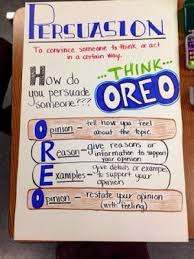 PERSUASION
To convince someone to think or act
in a certain way.
How do
you persuade
someone???
...THINK...
OREO
Opinion - tell how you feel
about the topic.
Reason - give reasons or
information to support
your opinion
Examples - give details or examples
to support your
opinion
Opinion - restate your opinion
(with feeling)